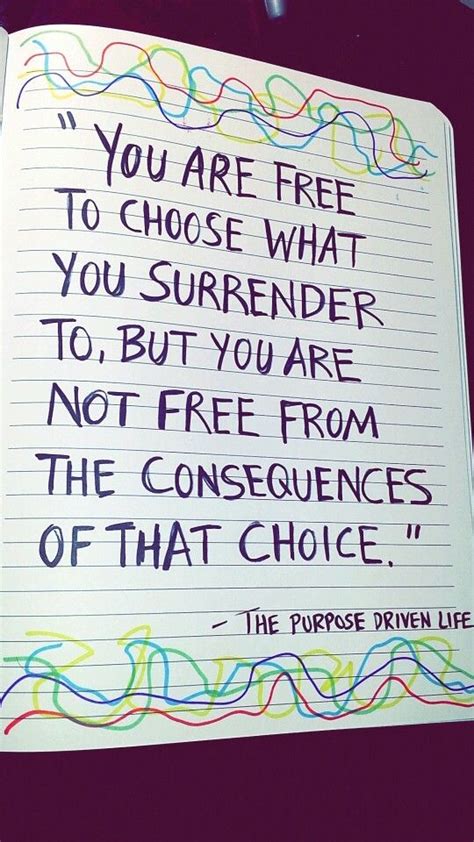 "YOU ARE FREE
TO CHOOSE WHAT
YOU SURRENDER
TO, BUT YOU ARE
NOT FREE FROM
THE CONSEQUENCES
OF THAT CHOICE."
- THE PURPOSE DRIVEN LIFE